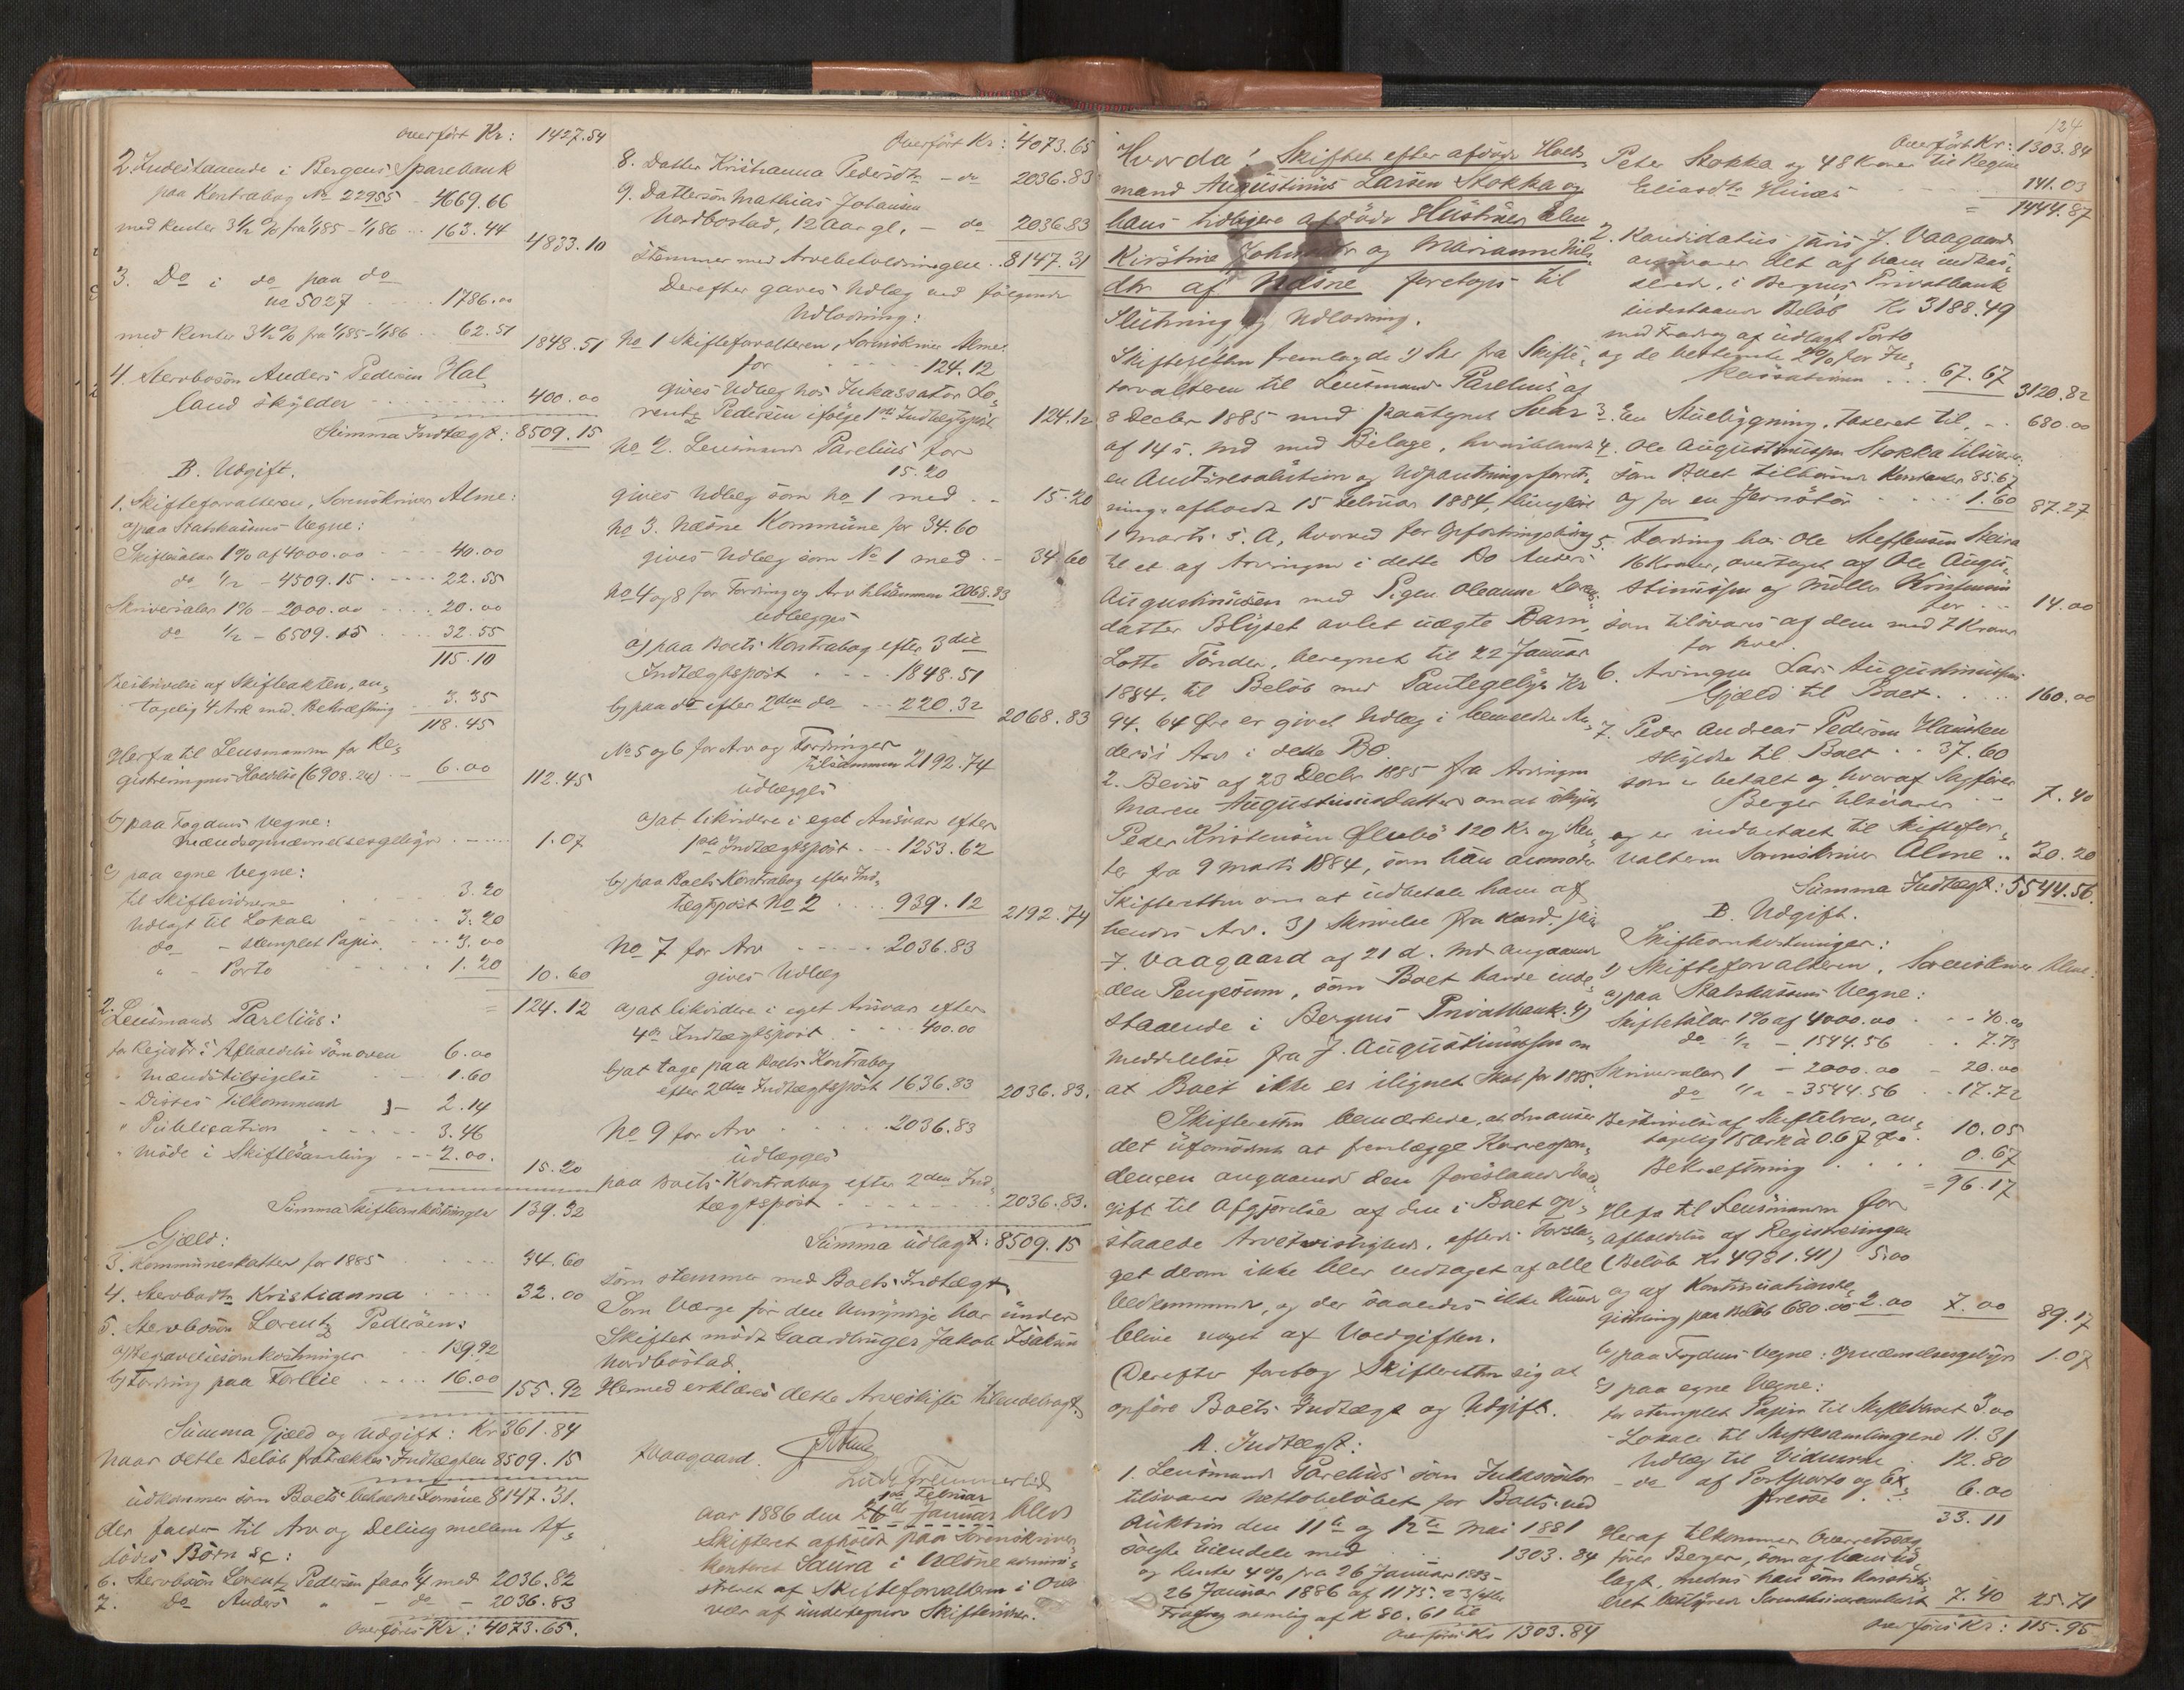 overført Kr: 1427.54
2. Indestaaende i Bergens Sparebank
paa Kontrabog No 22955 - 4669.66
med Renter 3½ % fra 1/1 85 - 1/1 86 .. 163.44 4833.10
3. Do i do paa do
No 5027 .... 1786.00
med Renter 3½ % fra 1/1 85 - 1/1 86 .. 62.51 1848.51
4. Stervbosøn Anders Pedersen Hal-
land skylder ........ 400.00
Summa Indtægt: 8509.15
B. Udgift.
1. Skifteforvalteren, Sorenskriver Alme:
a) paa Statskassens Vegne:
Skiftesalær 1% af 4000.00 ... 40.00
do ½ - 4509.15 .... 22.55
Skriversalær 1% - 2000.00 ... 20.00
do ½ - 6509.15 .... 32.55
115.10
Beskrivelse af Skifteakten, an-
tagelig 4 Ark med Bekræftning . 3.35
118.45
Herfra til Lensmanden for Re-
gistreringens Afholdelse (6908.24) .. 6.00 112.45
b) paa Fogdens Vegne:
Mændsopnævnelsesgebyr ..... 1.07
c) paa egne Vegne:
til Skiftevidnerne 3.20
Udlagt til Lokale 3.20
do - stemplet Papir .... 3.00
" - Porto ..... 1.20 10.60
= 124.12
2. Lensmand Parelius:
for Registr.s Afholdelse som oven 6.00
" Mændstilsigelse 1.60
- Disses Tilkommende - 2.14
" Publication ..... 3.46
- Møde i Skiftesamling ... 2.00. 15.20
Summa Skifteomkostninger 139.32
Gjæld:
3. Kommuneskatter for 1885 34.60
4. Stervbodtr Kristianna .... 32.00
5. Stervbosøn Lorentz Pedersen:
a) Begravelsesomkostninger . 139.92
b) Fordring paa Fællie .... 16.00 155.92
Summa Gjæld og Udgift: Kr 361.84
Naar dette Beløb fratrækkes Indtægten 8509.15
udkommer som Boets beholdne Formue 8147.31.
der falder til Arv og Deling mellem Af-
dødes Børn sc:
6. Stervbosøn Lorentz Pedersen faar ¼ med 2036.82
7. Do Anders " - do - 2036.83
overføres Kr: 4073.65.
Overført Kr: 4073.65
8. Datter Kristianna Pedersdtr - do 2036.83
9. Dattersøn Mathias Johansen
Nordbostad, 12 Aar gl. - do 2036.83
Stemmer med Arvebeholdningen . 8147.31
Derefter gaves Udlæg ved følgende
Udlodning:
No 1 Skifteforvalteren, Sorenskriver Alme
for ..... 124.12
gives Udlæg hos Inkassator Lo-
rentz Pedersen ifølge 1ste Indtægtspost 124.12
No 2. Lensmand Parelius for
15.20
gives Udlæg som No 1 med .. 15.20
No 3. Næsne Kommune for 34.60
gives Udlæg som No 1 med .. 34.60
No 4 og 8 for Fordring og Arv tilsammen 2068.83
udlægges
a) paa Boets Kontrabog efter 3die
Indtægtspost .... 1848.51
b) paa do efter 2den do ... 220.32 2068.83
No 5 og 6 for Arv og Fordringer
tilsammen 2192.74
udlægges
a) at likvidere i eget Ansvar efter
1ste Indtægtspost ... 1253.62
b) paa Boets Kontrabog efter Ind-
tægtspost No 2 .... 939.12 2192.74
No 7 for Arv ..... 2036.83
gives Udlæg
a) at likvidere i eget Ansvar efter
4de Indtægtspost ... 400.00
b) at tage paa Boets Kontrabog
efter 2den Indtægtspost 1636.83 2036.83.
No 9 for Arv ..... 2036.83
udlægges
paa Boets Kontrabog efter 2den Ind-
tægtspost ....... 2036.83.
Summa udlagt: 8509.15
som stemmer med Boets Indtægt
Som Værge for den Umyndige har under
Skiftet mødt Gaardbruger Jakob Isaksen
Nordbostad.
Hermed erklæres dette Arveskifte tilendebragt.
JVaagaard.
1ste Februar
Aar 1886 den 26de Januar blev
Skifteret afholdt paa Sorenskriver-
kontoret Saura i Næsne admini-
streret af Skifteforvalteren i Over-
vær af undertegnede Skiftevidner.
124
Hvorda! Skiftet efter afdøde Huus-
mand Augustinus Larsen Stokka og
hans tidligere afdøde Hustruer Elen
Kirstine Johnsdtr og Marianne Nils-
dtr af Næsne foretoges til
Slutning og Udlodning.
Skifteretten fremlagde 1) Skr fra Skifte-
forvalteren til Lensmand Parelius af
8 Decbr 1885 med paategnet Svar
af 14 s. Md med Bilage, hvoriblandt
en Amtsresolution og Udpantningsforret-
ning afholdt 15 Februar 1884, thinglæst
1 Marts s. A, hvorved for Opfostringsbidrag
til et af Arvingen i dette Bo Anders
Augustinusen med Pigen Oleanna Lorentz-
datter Blyset avlet uægte Barn,
Lotte Tønder, beregnet til 22 Januar
1884, til Beløb med Pantegebyr Kr
94.64 Øre er givet Udlæg i bemeldte An-
ders's Arv i dette Bo.
2. Bevis af 23 Decbr 1885 fra Arvingen
Maren Augustinusdatter om at skylde
Peder Kristensøn 120 Kr og Ren-
ter fra 9 Marts 1884, som hun anmoder
Skifteretten om at udbetale ham af
hendes Arv. 3) Skrivelse fra Kand. jur.
J. Vaagaard af 21 d. Md angaaende
den Pengesum, som Boet havde inde-
staaende i Bergens Privatbank. 4)
Meddelelse fra J. Augustinussen om
at Boet ikke er ilignet Skat for 1885.
Skifteretten bemærkede, at den anser
det ufornødent at fremlægge Korrespon-
dencen angaaende den foreslaaede Vold-
gift til Afgjørelse af den i Boet op-
staaede Arvetvistighed, efterat Forsla-
get derom ikke blev vedtaget af alle
Vedkommende, og der saaledes ikke kunde
blive noget af Voldgiften.
Derefter foretog Skifteretten sig at
opføre Boets Indtægt og Udgift.
A. Indtægt:
1. Lensmand Parelius som Inkassator
tilsvarer Nettobeløbet for Boets ved
Auktion den 11te og 12te Mai 1881
solgte Eiendele med 1303.84
og Renter 4% fra 26 Januar 1883 -
26 Januar 1886 af 1175.23 efter
Fradrag nemlig af K 80.61 til
Overføres Kr 1303.84
Overført Kr: 1303.84
Peter Stokka og 48 Kroner til Regine
Eliasdtr 141.03
= 1444.87
2. Kandidatus juris J. Vaagaard
ansvarer det af ham indkas-
serede, i Bergens Privatbank
indestaaende Beløb Kr 3188.49
med Fradrag af udlagt Porto
og de betingede 2% for In-
kassationen ... 67.67 3120.82
3. En Stuebygning, taxeret til .. 680.00
4. Ole Augustinussen Stokka tilsvarer
som Boet tilkommende Kontanter 85.67
og for en Jernstør .... 1.60 87.27
5. Fordring hos Ole Steffensen
16 Kroner, overtaget af Ole Augu-
stinussen og Møller Kristensen
for .. 14.00
som tilsvares af dem med 7 Kroner
for hver.
6. Arvingen Lars Augustinussens
Gjæld til Boet. ... 160.00
7. Peder Andreas Pedersen
skyldte til Boet .. 37.60
som er betalt og hvoraf Sagfører
Berger tilsvarer .. 7.40
og er indbetalt til Skiftefor-
valteren Sorenskriver Alme .. 30.20
Summa Indtægt: 5544.56.
B. Udgift.
Skifteomkostninger:
1) Skifteforvalteren, Sorenskriver Alme:
a) paa Statskassens Vegne:
Skiftesalær 1% af 4000.00 ... 40.00
do ½ - 1544.56 .. 7.73
Skriversalær 1 - 2000.00 - 20.00
do ½ - 3544.56 .. 17.72
Beskrivelse af Skiftebrev, an-
tagelig 15 Ark à 0.67 10.05
Bekræftning .... 0.67
= 96.17
Herfra til Lensmanden for
Afholdelse af Registreringen
(Beløb Kr 4981.41) 5.00
og af Kontinuationsre-
gistrering paa Beløb 680.00 2.00 7.00 89.17
b) paa Fogdens Vegne: Opnævnelsesgebyr 1.07
c) paa egne Vegne:
for stemplet Papir til Skiftebrevet 3.00
- Lokale til Skiftesamlingerne 11.31
Udlæg til Vidnerne . 12.80
- do af Postporto og Ex-
presse .. 6.00
33.11
Heraf tilkommer Overretssag-
fører Berger, som af ham ud-
lagt, medens han som konstitu-
eret bestyrede Sorenskriverembedet 7.40 25.71
Overføres Kr: 115.95